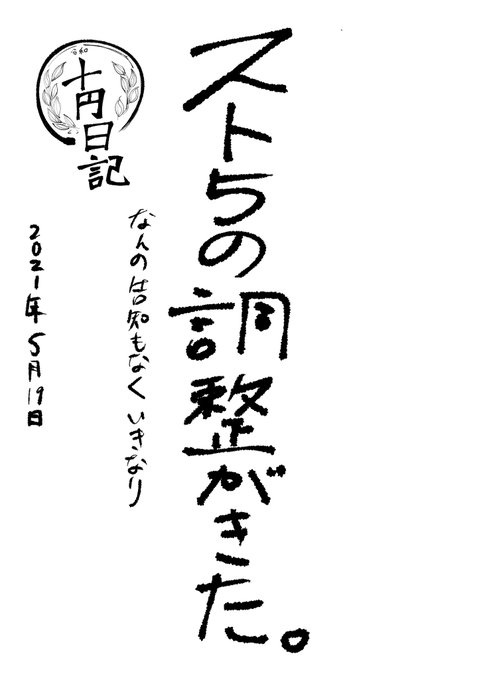 スト5の調整がきた。
なんの告知もなくいきなり
十円日記
2021年5月19日